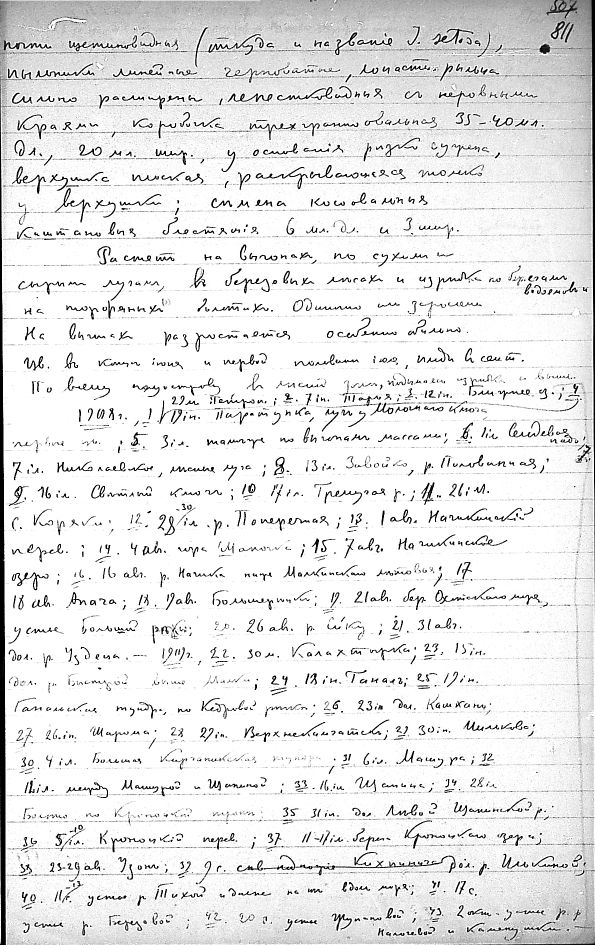 507
811
почти щетиновидныя (откуда и названіе I. setosa),
пыльники линейные черноватые, лопасти рыльца
сильно расширены, лепестковидныя съ неровными
краями, коробочка трехгранноовальная 35–40 мл.
дл., 20 мл. шир., у основанія резко сужена,
верхушка плоская, раскрывающаяся только
у верхушки; семена косоовальныя
каштановыя блестящія 6 мл. дл. и 3 шир.
Растетъ на выгонахъ, по сухимъ и
сырымъ лугамъ, въ березовыхъ лесахъ и изредка по берегамъ
водоемовъ и
на торфяныхъ болотахъ. Одиночно или зарослями.
На выгонахъ разростается особенно обильно.
Цв. въ конце іюня и первой половине іюля, плоды въ сент.
По всему полуострову въ лесной зоне, подымаясь изредка и выше.
29 іюн. Петроп.; 2. 7 іюл. Тарья; 3. 12 іюл. Ближнее оз.; 4.
1908 г., 1. 19 іюл. Паратунка, луг у Молочнаго ключа
первые цв.; 5. 3 іл. там же по выгонамъ массами; 6. іл Селдевая падь; 7.
7 іл. Николаевское, лесные луга; 8. 13 іл. Завойко, р. Половинная;
9. 16 іл. Светлый ключъ; 10. 17 іл. Тремучая р.; 11. 26 іл.
с. Коряки; 12. 28-30 іл. р. Поперечная; 13. 1 авг. Начикинскій
перев.; 14. 4 авг. гора Шапочка; 15. 7 авг. Начикинское
озеро; 16. 16 авг. р. Начика ниже Малкинскаго летовья; 17.
18 авг. Апача; 18. 19 авг. Большерецкъ; 19. 21 авг. бер. Охотскаго моря,
устье Большой реки; 20. 26 авг. р. ; 21. 31 авг.
дол. р. Уздеца. — 1909 г., 22. 30 м. Калахтырка; 23. 15 іл.
дол. р. Быстрой выше Малки; 24. 18 іл. Ганалъ; 25. 19 іл.
Ганальская тундра, по Кедровой речке; 26. 23 іл дол. Кашкана;
27. 26 іл. Шарома; 28. 29 іл. Верхнекамчатскъ; 29. 30 іл. Мильково;
30. 4 іл. Большая Кирганикская тундра; 31. 6 іл. Машура; 32.
іл. между Машурой и Щапиной; 33. 16 іл. Щапина; 34. 28 іл
Болото по Кроноцкой тропе; 35. 31 іл. дол. Левой Щапинской р.;
36. 5-10 іл. Кроноцкій перев.; 37. 11-17 іл. берега Кроноцкаго озера;
38. 23-29 авг. Узонъ; 39. 9 с. Кихпиныча дол. р. Шькиной;
40. 11-12 с. устье р. Тихой и далее на югъ вдоль моря; 41. 17 с.
устье р. Березовой; 42. 20 с. устье Жупановой; 43. 2 окт. устье р. р.
Налачевой и Каменушки. —